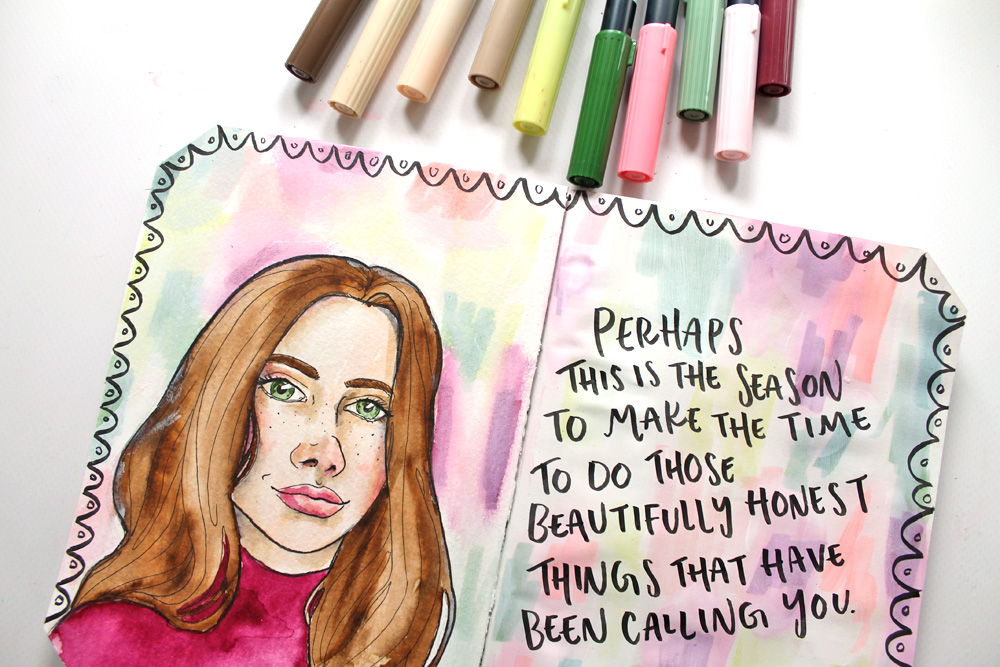 PERHAPS
THIS IS THE SEASON
TO MAKE THE TIME
TO DO THOSE
BEAUTIFULLY HONEST
THINGS THAT HAVE
BEEN CALLING YOU.